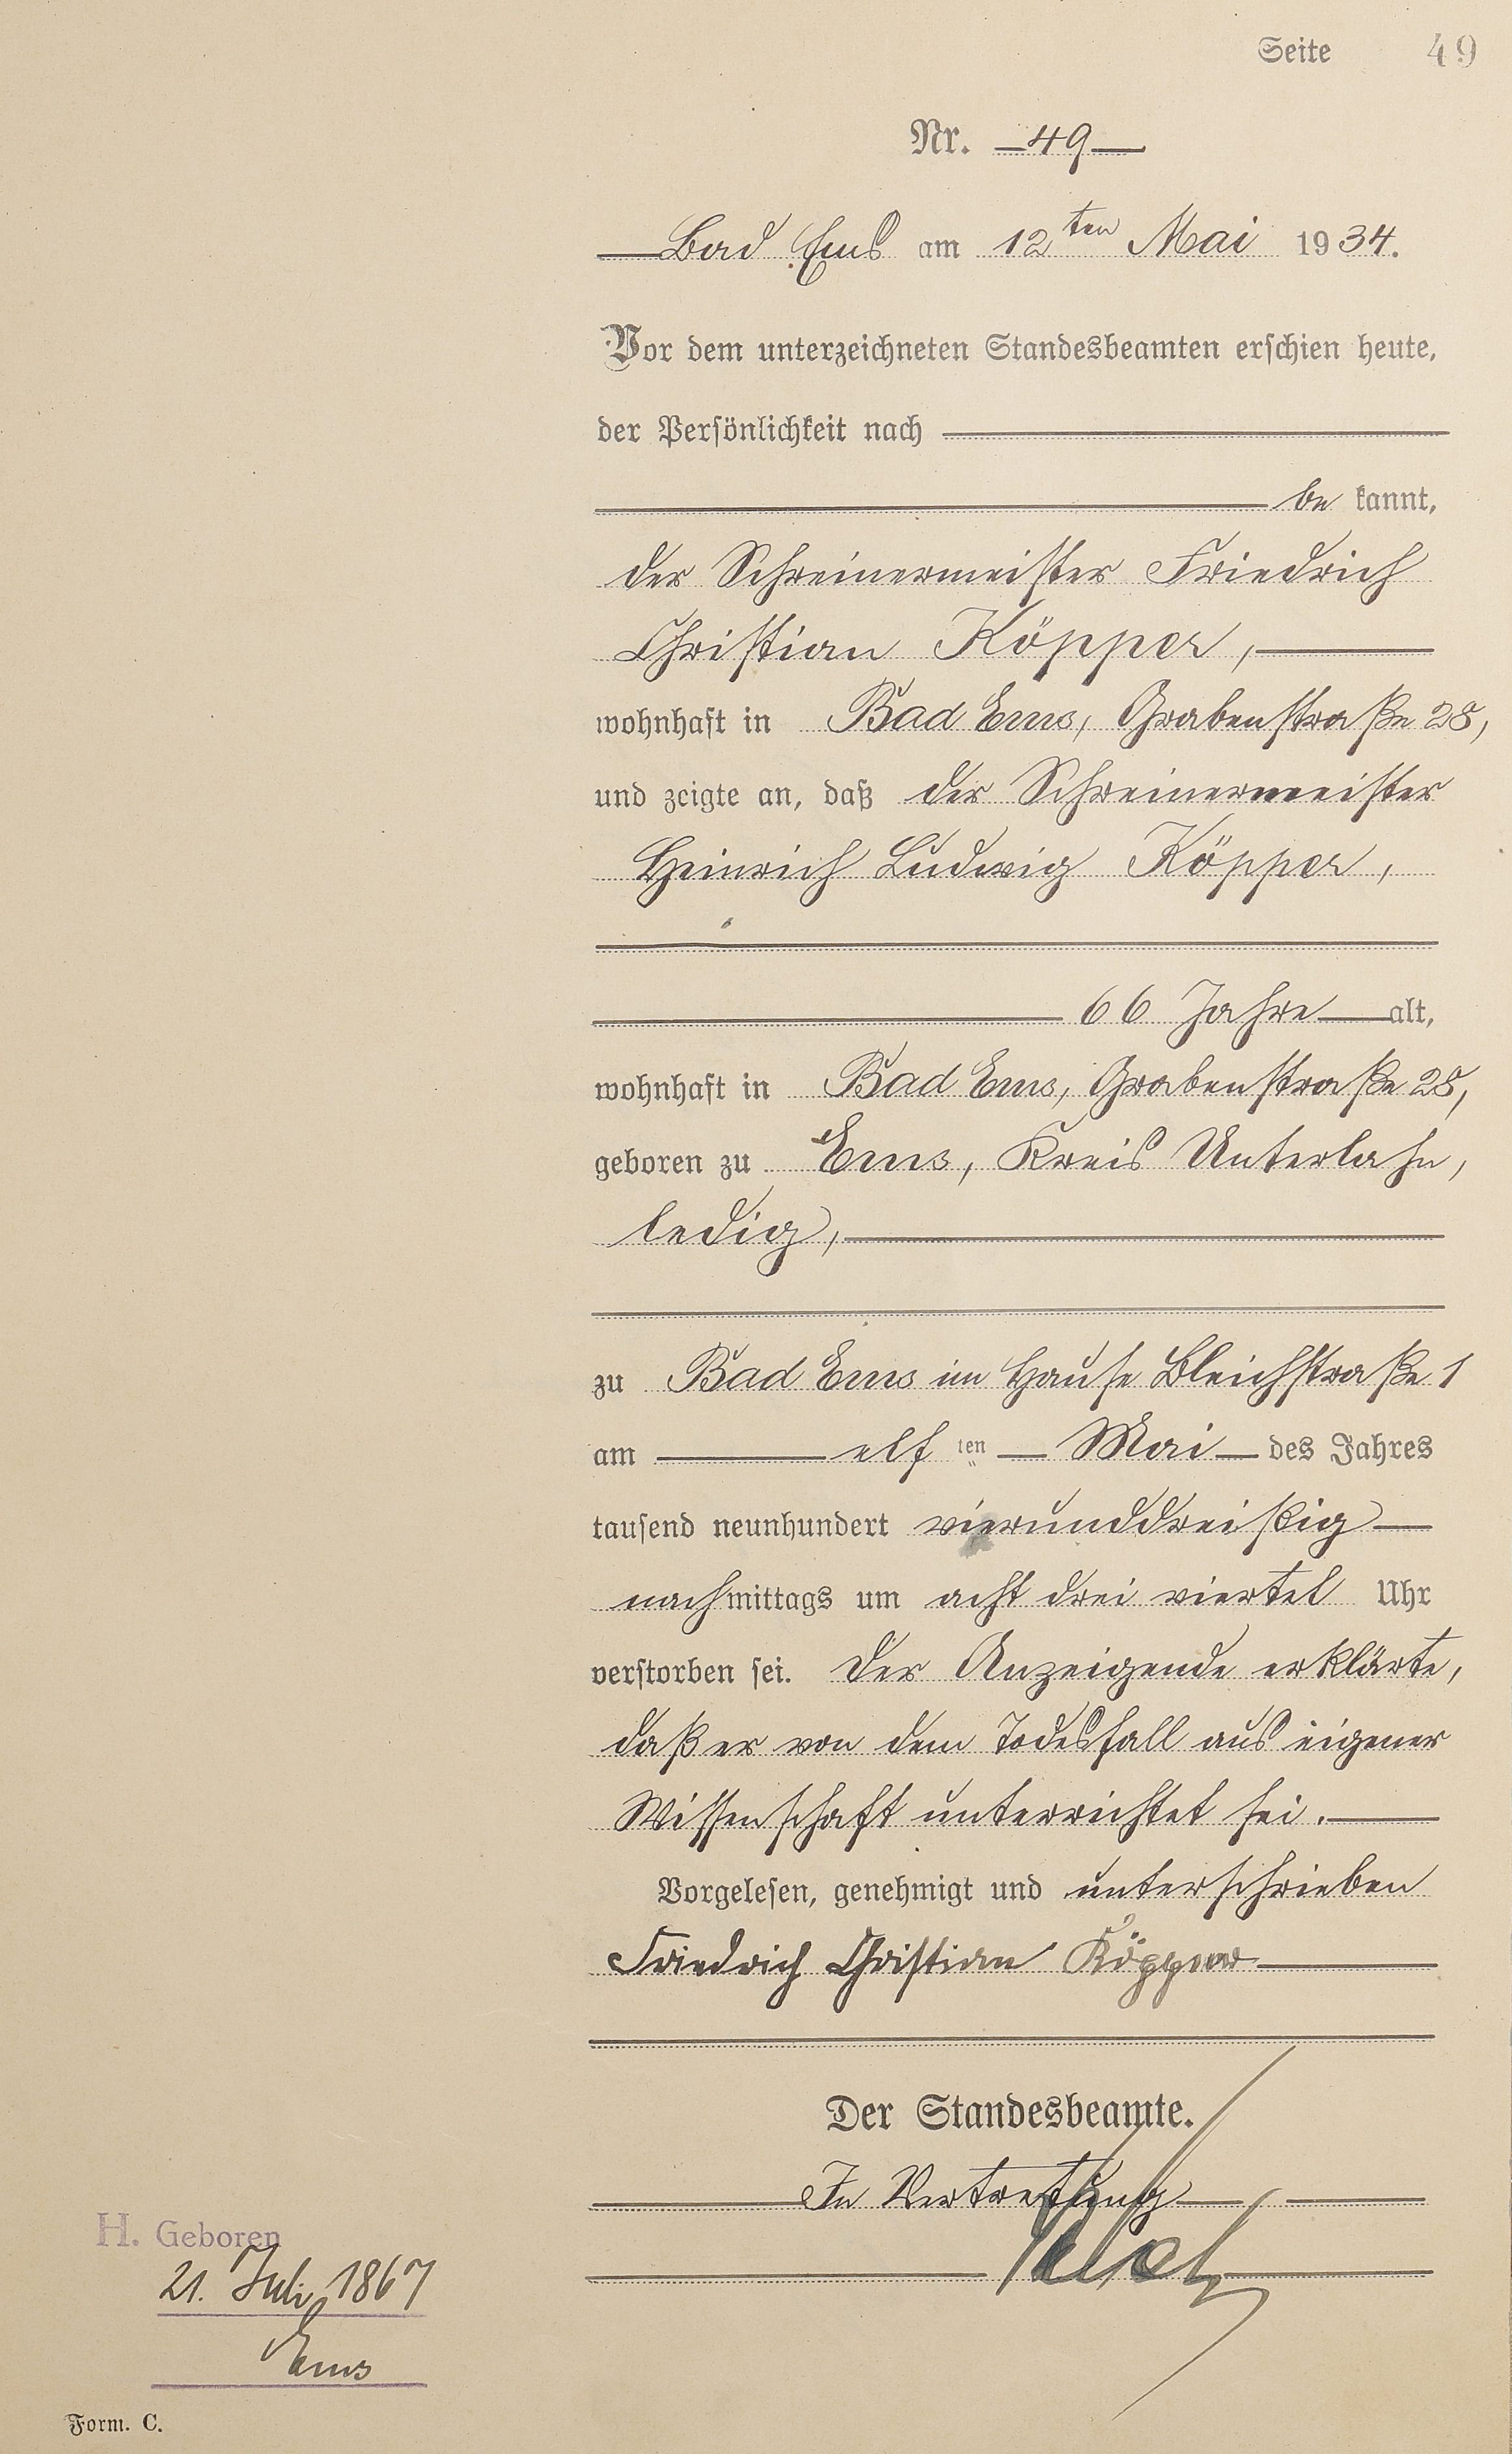 Seite 49
Nr. 49
Bad Ems am 12ten Mai 1934.
Vor dem unterzeichneten Standesbeamten erschien heute,
der Persönlichkeit nach
be kannt,
der Schreinermeister Friedrich
Christian Köpper,
wohnhaft in Bad Ems, Grabenstraße 28,
und zeigte an, daß der Schreinermeister
Heinrich Ludwig Köpper,
66 Jahre alt,
wohnhaft in Bad Ems, Grabenstraße 28,
geboren zu Ems, Kreis Unterlahn,
ledig,
zu Bad Ems im Hause Bleichstraße 1
am elf ten Mai des Jahres
tausend neunhundert vierunddreißig
nachmittags um acht drei viertel Uhr
verstorben sei. Der Anzeigende erklärte,
daß er von dem Todesfall aus eigener
Wissenschaft unterrichtet sei.
Vorgelesen, genehmigt und unterschrieben
Friedrich Christian Köpper
Der Standesbeamte.
In Vertretung
H. Geboren
21. Juli 1867
Ems
Form. C.